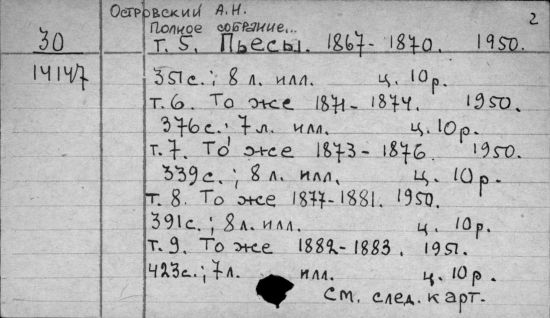 Островский А.Н. 2
Полное собрание...
30 т. 5. Пьесы. 1867-1870. 1950.
14147 351с.; 8 л. илл. ц. 10р.
т. 6. То же 1871-1874. 1950.
376с.; 7л. илл. ц. 10р.
т. 7. То же 1873-1876. 1950.
339с.; 8 л. илл. ц. 10р.
т. 8. То же 1877-1881. 1950.
391с.; 8л. илл. ц. 10р.
т. 9. То же 1882-1883. 1951.
423с.; 7л. илл. ц. 10р.
См. след. карт.